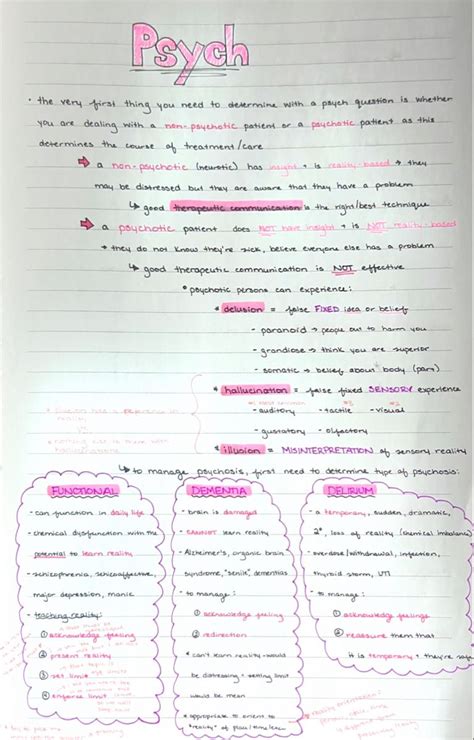 Psych
• the very first thing you need to determine with a psych question is whether
you are dealing with a non-psychotic patient or a psychotic patient as this
determines the course of treatment/care
⇨ a non-psychotic (neurotic) has insight + is reality-based → they
may be distressed but they are aware that they have a problem
↳ good therapeutic communication is the right/best technique
⇨ a psychotic patient does NOT have insight + is NOT reality-based
→ they do not know they're sick, believe everyone else has a problem
↳ good therapeutic communication is NOT effective
• psychotic persons can experience:
* delusion = false FIXED idea or belief
- paranoid → people out to harm you
- grandiose → think you are superior
- somatic → belief about body (pars)
* hallucination = false fixed SENSORY experience
- auditory - tactile - visual
- gustatory - olfactory
* illusion = MISINTERPRETATION of sensory reality
↳ to manage psychosis, first need to determine type of psychosis:
FUNCTIONAL
- can function in daily life
- chemical dysfunction with the
potential to learn reality
- schizophrenia, schizoaffective,
major depression, manic
- teaching reality:
① acknowledge feeling
② present reality
③ set limit
④ enforce limit
DEMENTIA
- brain is damaged
- CANNOT learn reality
- Alzheimer's, organic brain
syndrome, "senile", dementias
- to manage:
① acknowledge feeling
② redirection
* can't learn reality would
be distressing + setting limit
would be mean
* appropriate to orient to
"reality" of place/time/etc.
DELIRIUM
- a temporary, sudden, dramatic,
2°, loss of reality (chemical imbalance)
- overdose/withdrawal, infection,
thyroid storm, UTI
- to manage:
① acknowledge feelings
② reassure them that
it is temporary + they're safe